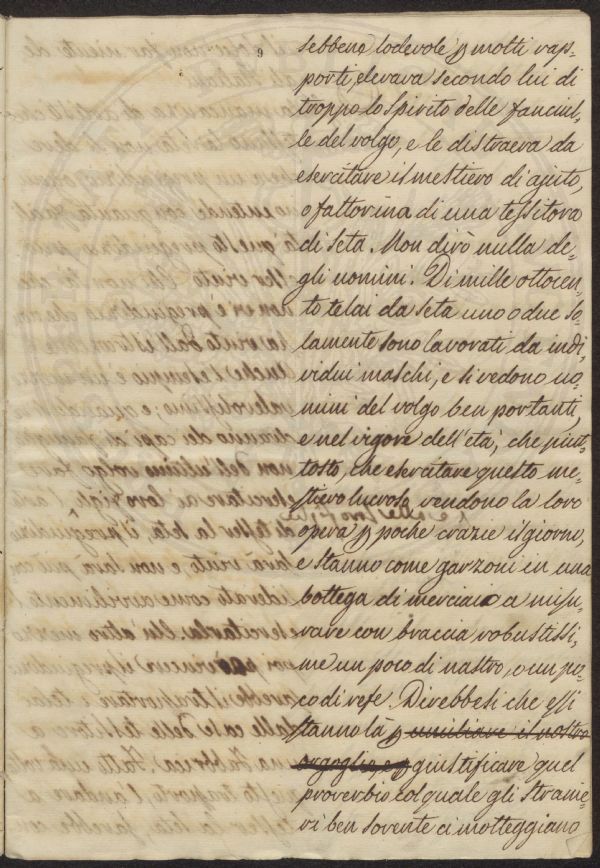 9
sebbene lodevole p molti rap-
porti, elevava secondo lui di
troppo lo spirito delle fanciul-
le del volgo, e le distraeva da
esercitare il mestiero di ajuto,
o fattorina di una tessitora
di seta. Non dirò nulla de-
gli uomini. Di mille ottocen-
to telai da seta uno o due so-
lamente sono lavorati da indi-
vidui maschi, e si vedono uo-
mini del volgo ben portanti,
e nel vigore dell'età, che piut-
tosto, che esercitare questo me-
stiero lucroso vendono la loro
opera p poche crazie il giorno,
e stanno come garzoni in una
bottega di merciaio a misu-
rare con braccia robustissi-
me un poco di nastro, o un po-
co di refe. Direbbesi che essi
stanno là p umiliare il nostro
orgoglio, e p giustificare quel
proverbio col quale gli stranie-
ri ben sovente ci motteggiano